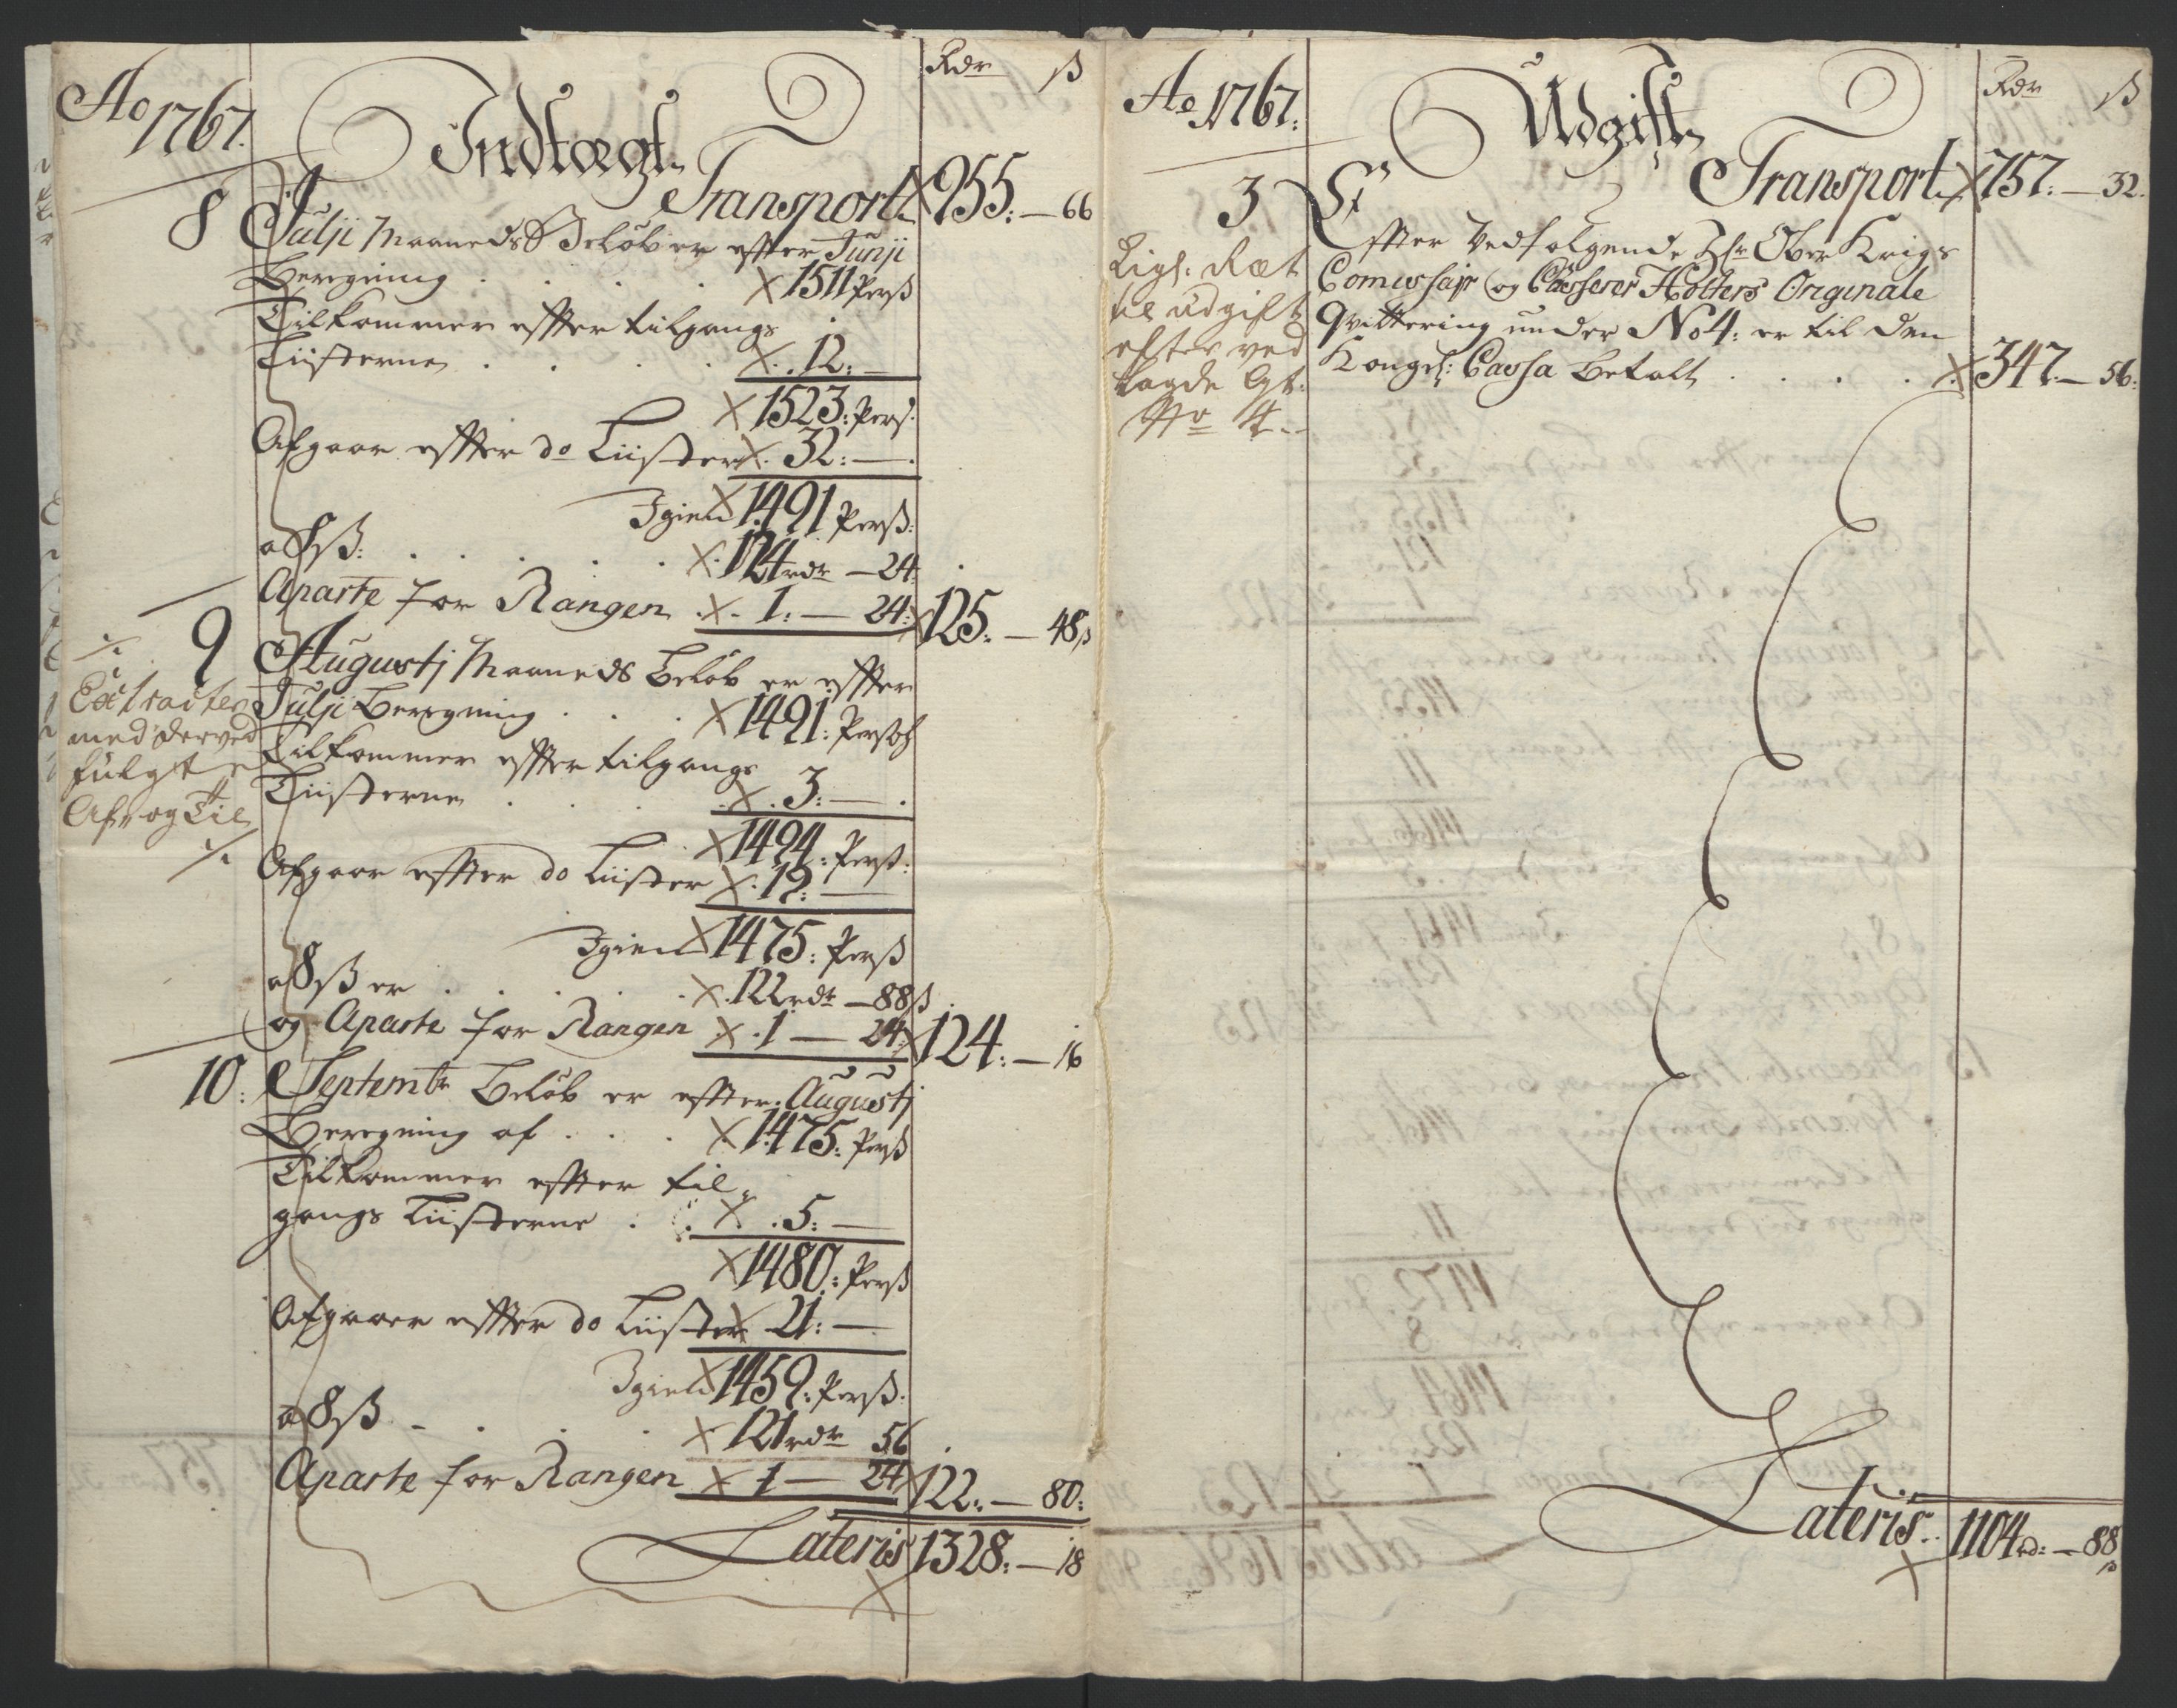 Ao 1767.
Indtægt
Rdr ß
Transport 955: — 66
8 Julji Maaneds Beløb er efter Junji
Beregning . . . 1511 Perß
Tilkommer effter tilgangs
Liisterne . . . 12: —
1523: Pers:
Afgaar effter do Liister 32: —
Igien 1491 Perß:
a 8 ß: . . . 124 rdr — 24
Aparte for Rangen 1: — 24: 125: — 48 ß
9 Augustj Maaneds Beløb er effter
Julji Beregning . . . 1491: Persoh
Tilkommer effter tilgangs
Liisterne . . . 3: —
1494: Perß:
Afgaar effter do Liister 19: —
Igien 1475: Perß
a 8 ß er . . . 122 rdr — 88 ß
og Aparte for Rangen 1 — 24: 124: — 16
./.
Extracten
med derved
fulgte
Af- og Til
./.
10: Septembr Beløb er effter Augustj
Beregning af . . . 1475: Perß
Tilkommer effter til-
gangs Liisterne . . 5: —
1480: Perß
Afgaaer effter do Liister 21: —
Igien 1459: Perß:
a 8 ß . . . 121 rdr 56
Aparte for Rangen 1 — 24 122: — 80:
Lateris 1328: — 18
Ao 1767:
Udgift
Rdr ß
Transport 757: — 32.
3 Efter Vedfølgende Hr Ober Krigs
Comissair og Casserer Holters Originale
Qvittering under No 4: er til den
Kongel: Cassa Betalt . . . . 347. — 56:
Rigt. Ræt
til udgift
efter ved
lagde Qt:
No 4
Lateris 1104 rd: — 88 ß